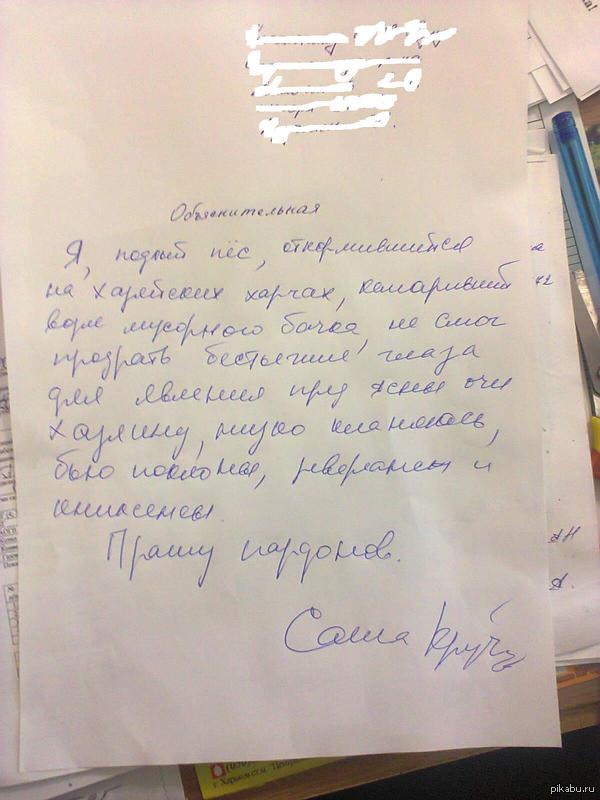 Объяснительная
Я, подлый пёс, откормившийся
на хозяйских харчах, кемаривший
возле мусорного бачка, не смог
продрать бестыжие глаза
для явления пред ясны очи
Хозяину, низко кланяюсь,
бью поклоны, реверансы и
книксены
Прашу пардонов.
Саша
pikabu.ru